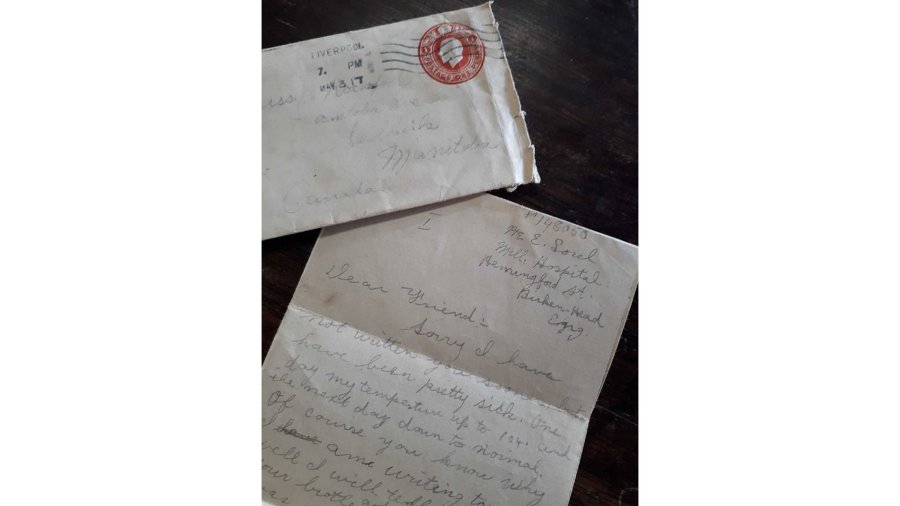 LIVERPOOL
7. PM
MAY 3 17
POSTAGE ONE PENNY
Manitoba
Canada
I
Mr E. Sorel
Mili. Hospital
Hemingford St.
Birken-Head
Eng
Dear Friend:-
Sorry I have
not written you sooner but
have been pretty sick. One
day my temperture up to 104° and
the next day down to normal.
Of course you know why
I have am writing to
well I will tell
your brother
was